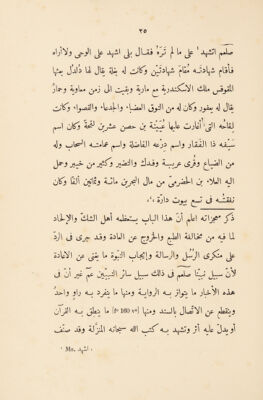 ٢٥
صلعم اتشهد¹ على ما لم تَرَهُ فقال بلى اشهد على الوحى ولا اراه
فأقام شهادتَـه مُقامَ شهادتَيْن وكانت له بغلة يقال لها دُلْدُل بعثها
المقوقس ملك الاسكندرية مع مارية وبقيت الى زمن معاوية وحمارٌ
يقال له يعفور وكان له من النوق العضباء والجدعاء والقصواء وكانت
لِقاحُه التى أغارت عليها عُيَيْنَة بن حصن عشرين لقحةً وكان اسم
سيفه ذا الفَقار واسم درعه الفاضلة واسم عمامته السحاب وله
من الضياع وقُرى عربية وفدك والنضير وكثير من خيبر وحمل
اليه العلاء بن الحضرمىّ من مال البحرين مائة وثمانين ألفًا وكان
نفقتُـه فى تسع بيوت دارّة ،'،
ذكر معجزاته اعلم أنّ هذا الباب يستعظمه أهل الشكّ والإلحاد
لما فيه من مخالفة الطبع والخروج عن العادة وقد جرى فى الردّ
على منكرى الرُسُل والرسالة وإيجاب النبوّة ما يغنى عن الاعادة
لأنّ سبيل نبيّنا صلعم فى ذلك سبيل سائر النبيّين عمّ غير أنّ فى
هذه الأخبار ما يتواتر به الرواية ومنها ما ينفرد بـه راوٍ واحدٌ
وينقطع عن الاتصال بالسند ومنها [f⁰ 160 v⁰] ما ينطق به القرآن
أو يدلّ عليه أثر وتشهد به كتب الله سبحانه المنزلة وقد صنّف
¹ Ms. اشهد.